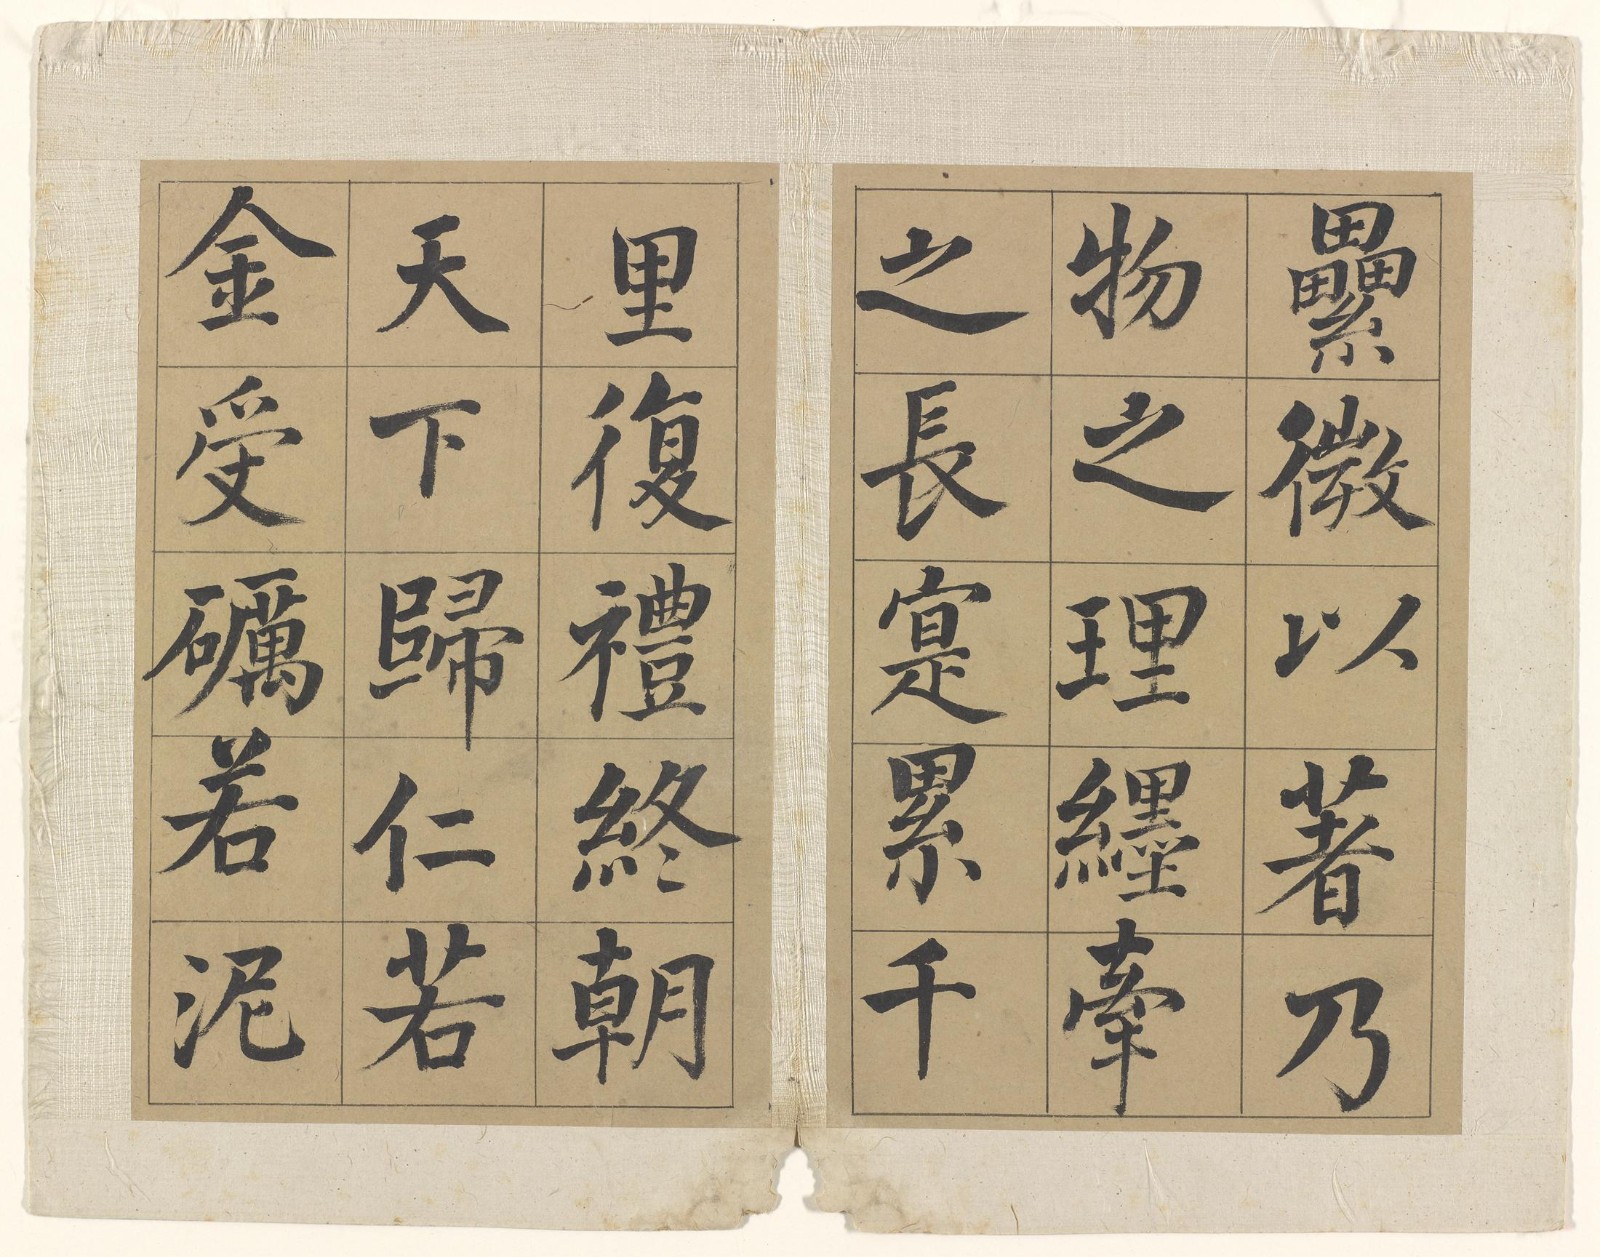 纍微以著乃
物之理纒牽
之長寔累千
里復禮終朝
天下歸仁若
金受礪若泥